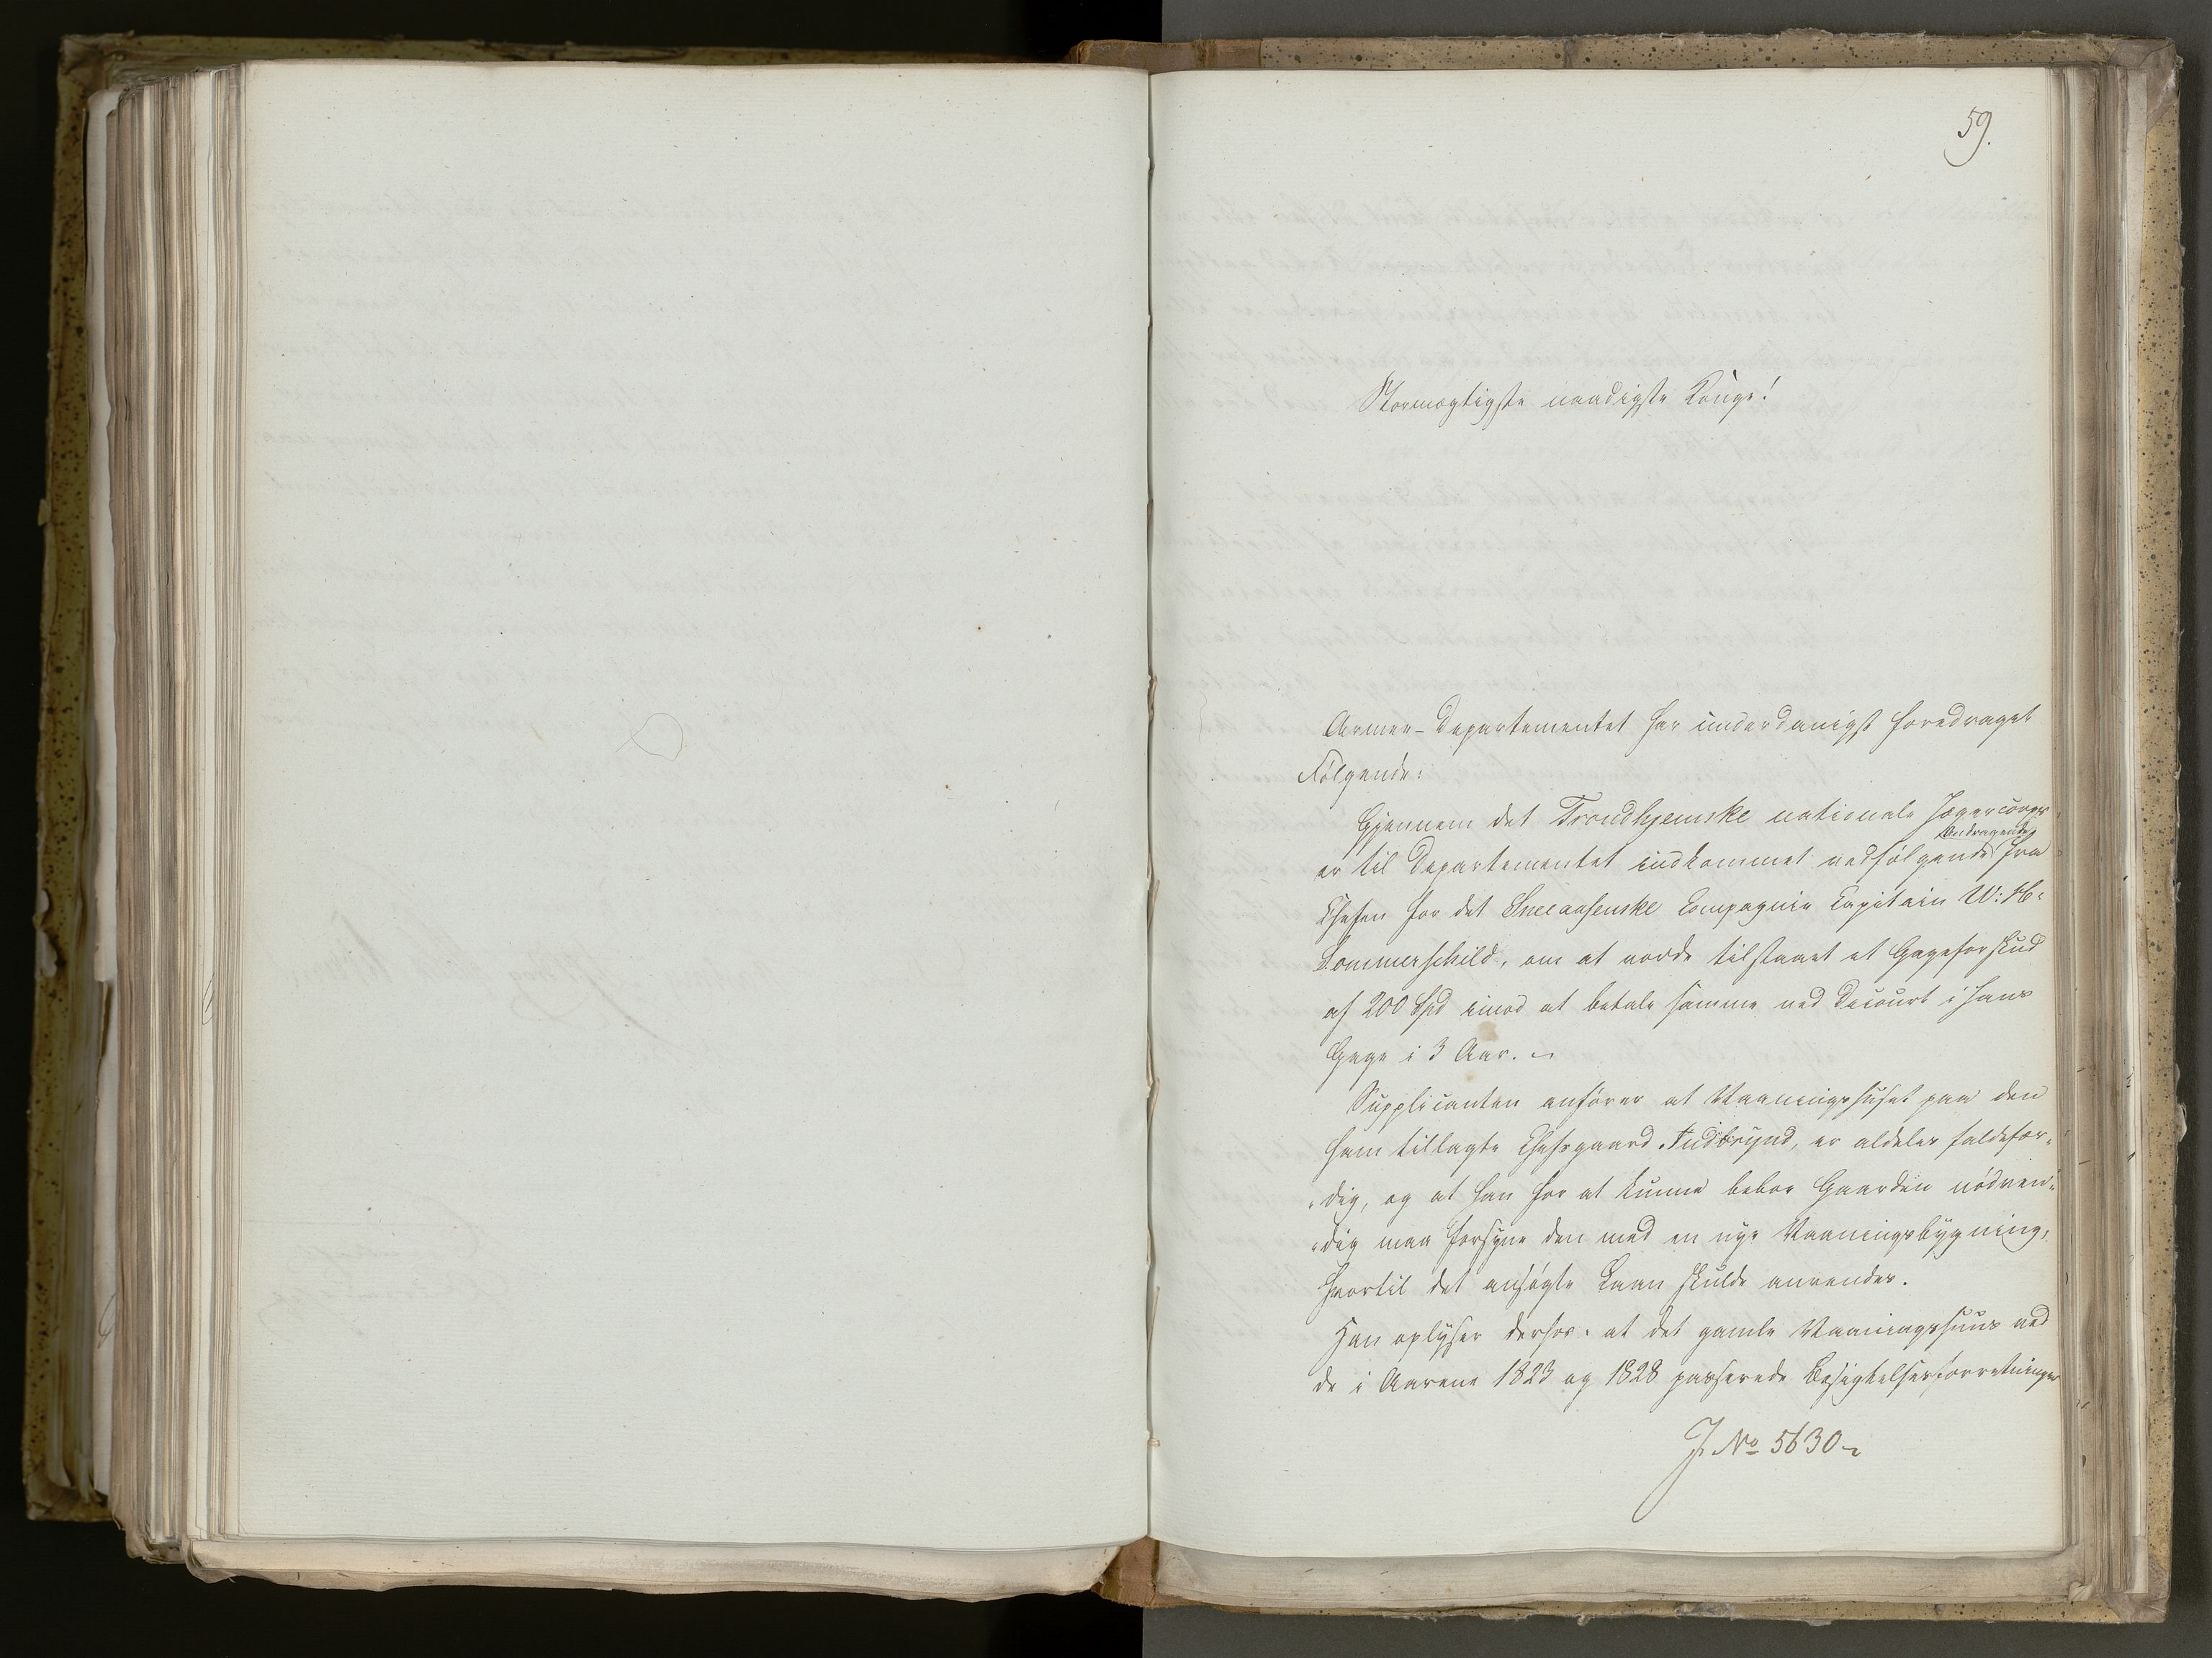 59.
Stormægtigste naadigste Konge!
Armee-Departementet har underdanigst foredraget
Følgende:
Gjennem det Trondhjemske nationale Jægercorps
er til Departementet indkommet vedfølgende Andragende fra
Chefen for det Sneeaasenske Compagnie Capitain W: H:
Sommerschild, om at vorde tilstaaet et Gageforskud
af 200 Spd imod at betale samme ved Decourt i hans
Gage i 3 Aar.
Supplicanten anfører at Vaaningshuset paa den
ham tillagte Chefsgaard Indbrynd, er aldeles faldefær-
-dig, og at han for at kunne beboe Gaarden nødven-
-dig maa forsyne den med en nye Vaaningsbygning,
hvortil det ansøgte Laan skulde anvendes.
Han oplyser derhos, at det gamle Vaaningshuus ved
de i Aarene 1823 og 1828 passerede Besigtelsesforretninger
J. No 5630